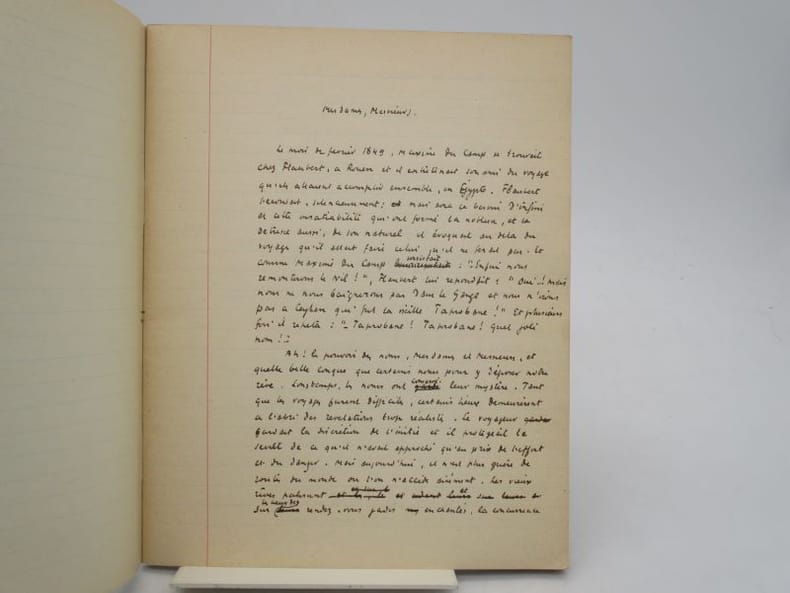 Mesdames, Messieurs.
Le mois de février 1849, Maxime Du Camp se trouvait
chez Flaubert, à Rouen et il entretenait son ami du voyage
qu'ils allaient accomplir ensemble, en Égypte. Flaubert
l'écoutait, silencieusement; mais avec ce besoin d'infini
et cette insatiabilité qui ont formé la noblesse, et la
détresse aussi, de son naturel il évoquait au delà du
voyage qu'il allait faire celui qu'il ne ferait pas. Et
comme Maxime Du Camp insistait : "Enfin nous
remonterons le Nil!", Flaubert lui répondit : "Oui..! Mais
nous ne nous baignerons pas dans le Gange et nous n'irons
pas à Ceylan qui fut la vieille Taprobane!" Et plusieurs
fois il répéta : "Taprobane! Taprobane! Quel joli
nom!"
Ah! le pouvoir des noms, Mesdames et Messieurs, et
quelle belle conque que certains noms pour y déposer notre
rêve. Longtemps, les noms ont conservé leur mystère. Tant
que les voyages furent difficiles, certains lieux demeurèrent
à l'abri des révélations trop réalistes. Le voyageur
gardait la discrétion de l'initié et il protégeait le
secret de ce qu'il n'avait approché qu'au prix de l'effort
et du danger. Mais aujourd'hui, il n'est plus guère de
du monde où l'on n'accède aisément. Les vieux
rêves pâlissent et
sur rendez-vous jadis enchantés, la concurrence